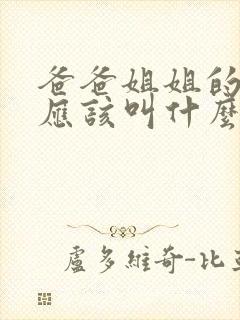 爸爸姐姐的
應該叫什麼
盧多維奇-比亞